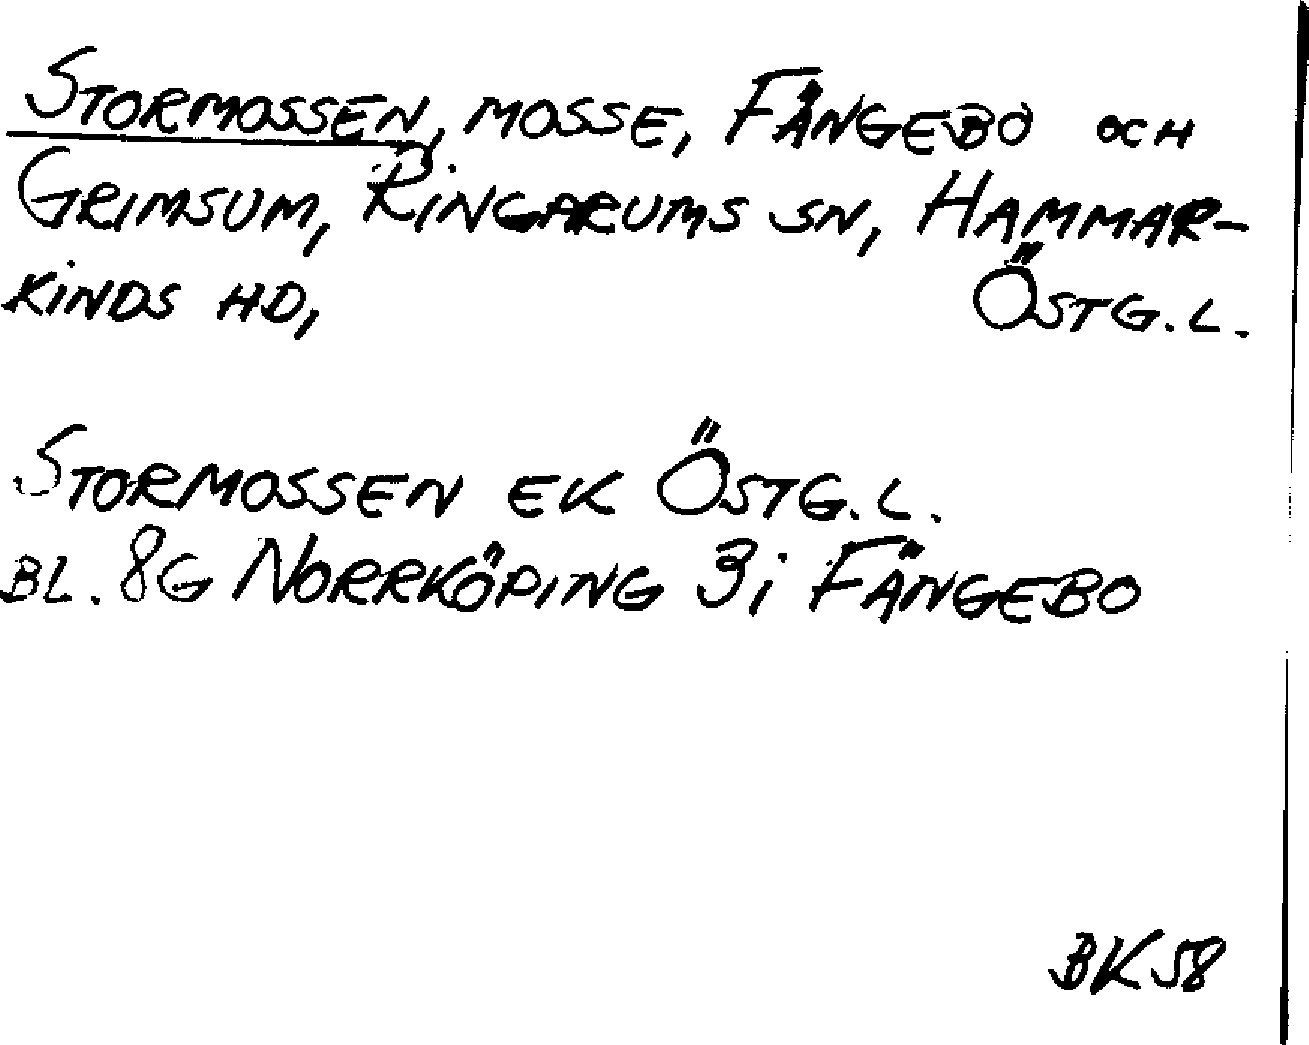 STORMOSSEN, MOSSE, FÄNGEBO OCH
GRIMSUM, RINGARUMS SN, HAMMAR-
KINDS HD, ÖSTG.L.
STORMOSSEN EK ÖSTG.L.
BL. 8G NORRKÖPING 3i FÄNGEBO
BK58